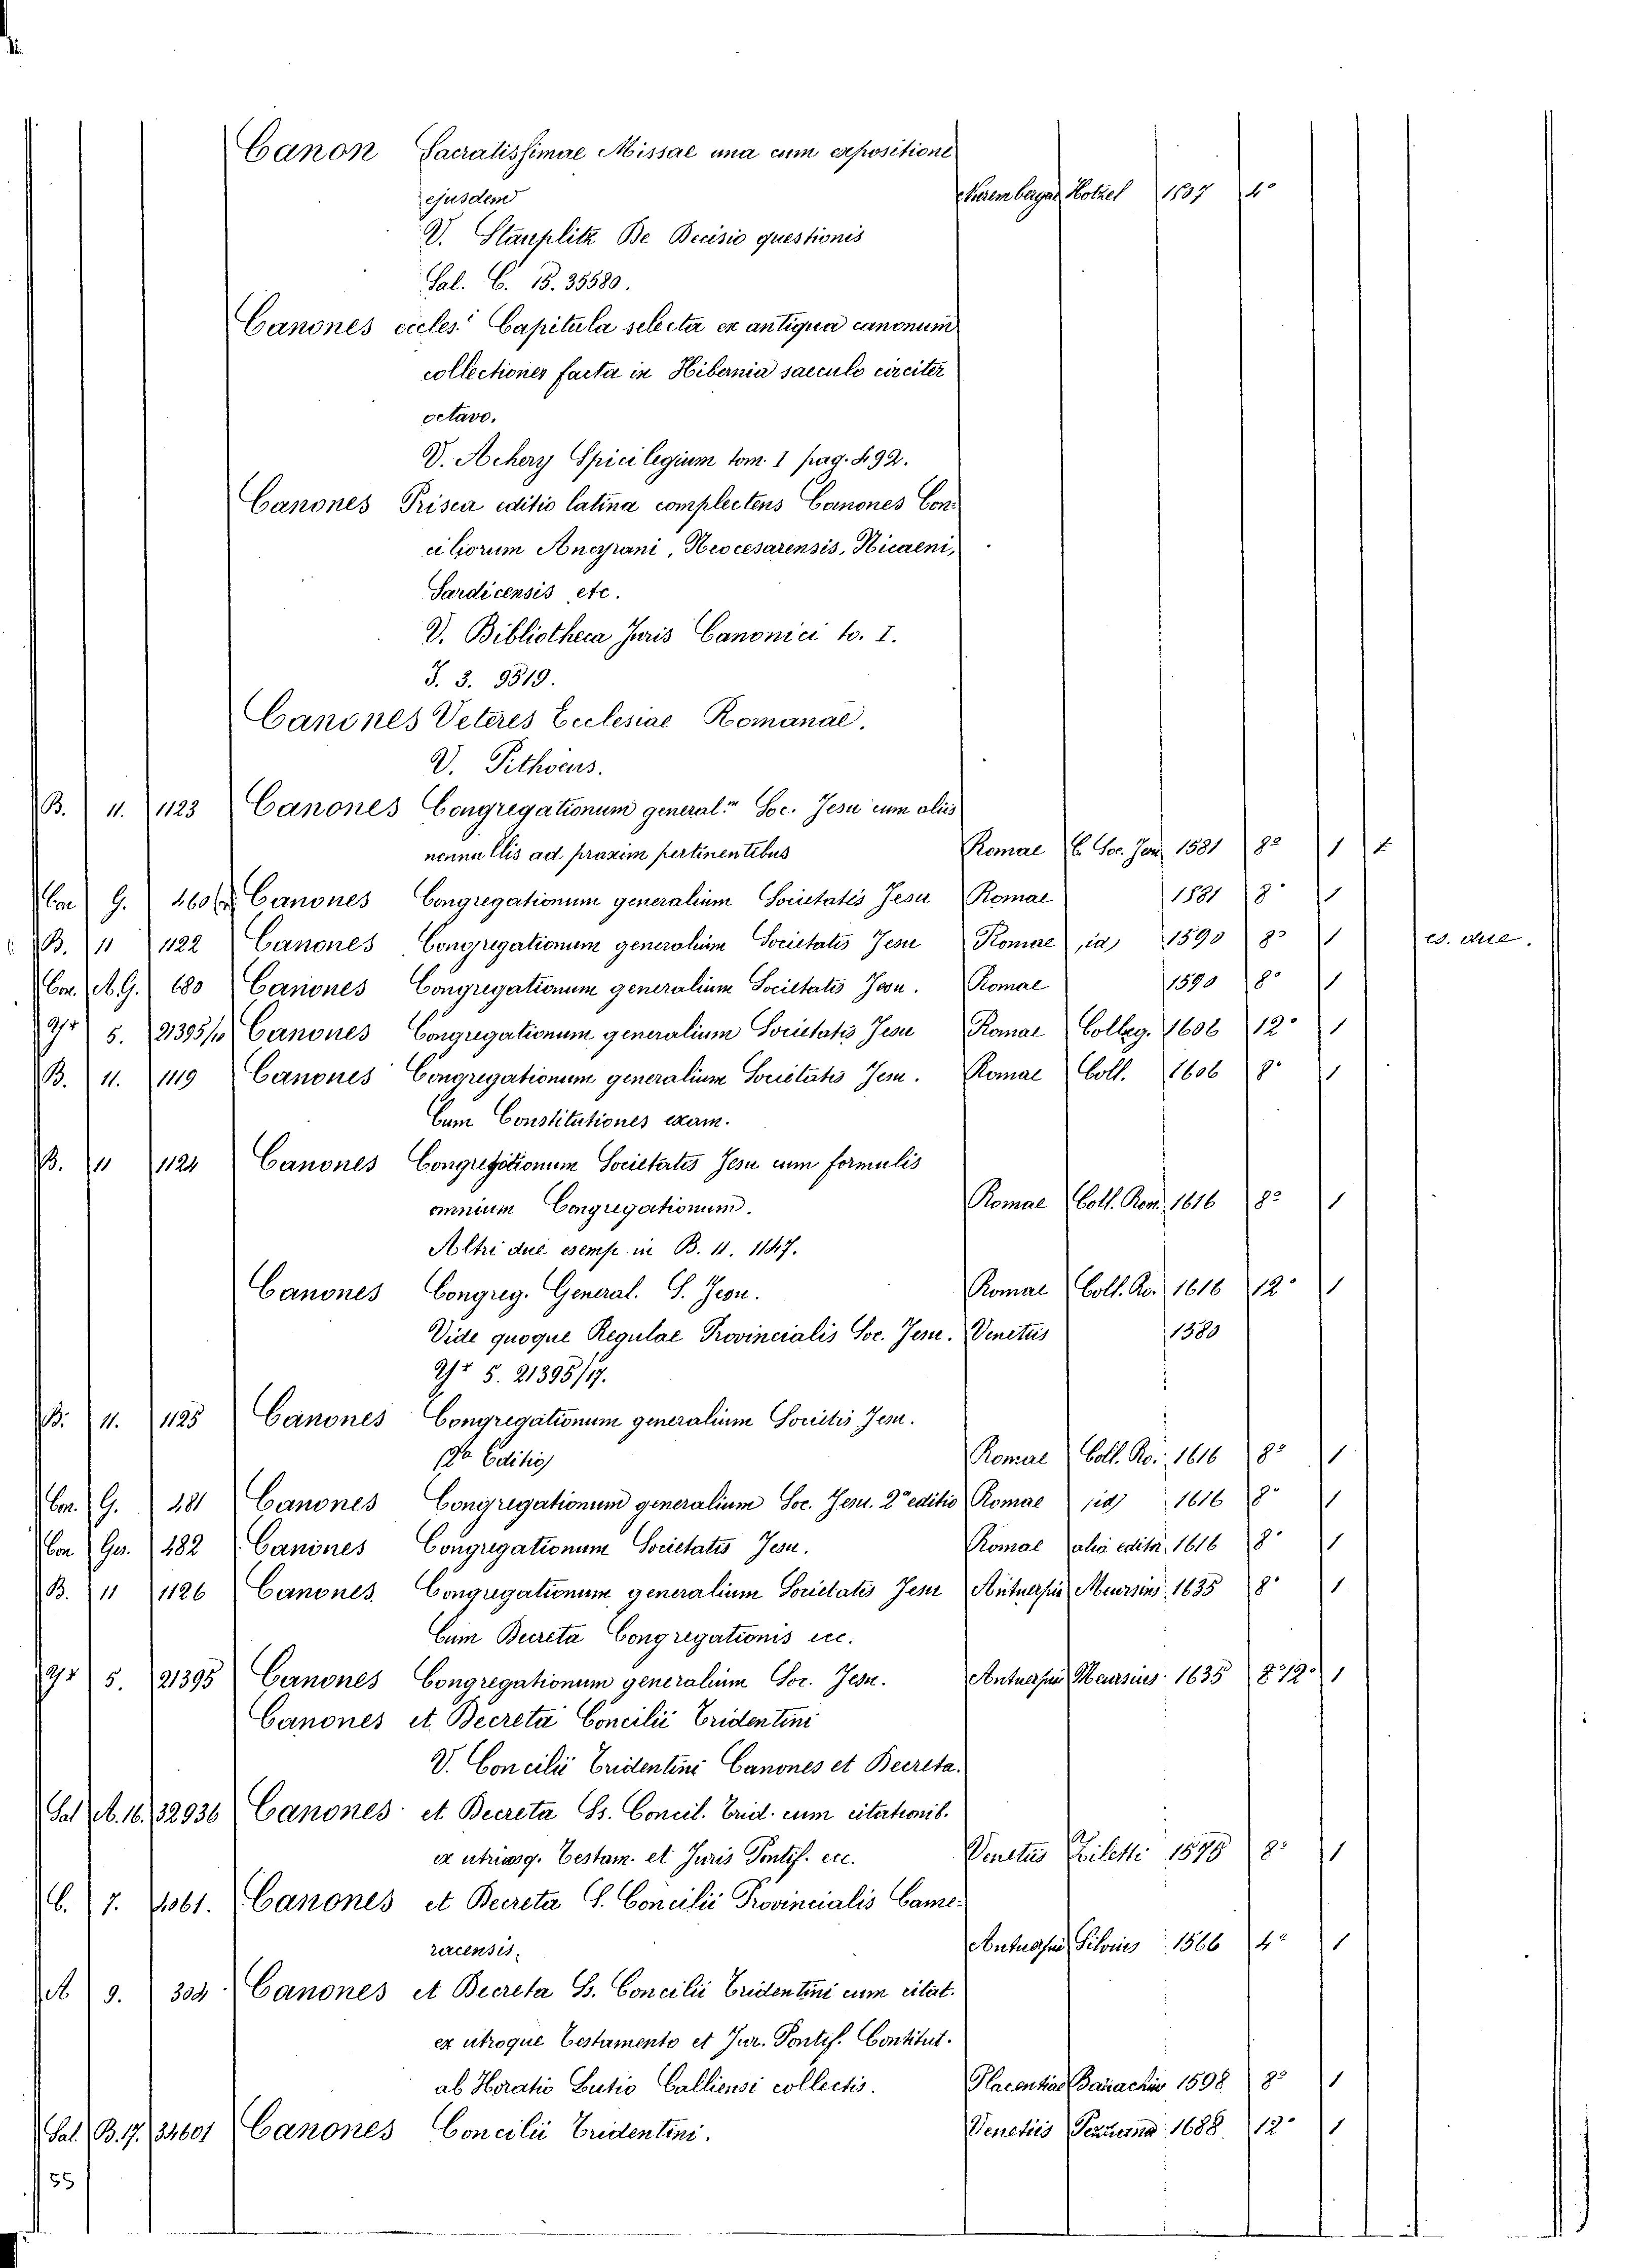 Canon Sacratissimae Missae una cum expositione
ejusdem Nuremberger Hotzel 1507 4°
V. Stauplitz De Decisio questionis
Sal. C. 15. 35580.
Canones eccles. Capitula selecta ex antiqua canonum
collectiones facta in Hibernia saeculo circiter
octavo.
V. Achery Spicilegium tom. 1 pag. 492.
Canones Prisca editio latina complectens Canones Con
ciliorum Ancyrani, Neocesarensis, Nicaeni,
Sardicensis etc.
V. Bibliotheca Juris Canonici to. I.
J. 3. 9519.
Canones Veteres Ecclesiae Romanae.
V. Pithoeus.
B. 11. 1123 Canones Congregationum general.m Soc. Jesu cum aliis
nonnullis ad praxim pertinentibus Romae C. Soc. Jesu 1581 8° 1
Cor G. 460 Canones Congregationum generalium Societatis Jesu Romae 1581 8° 1
B. 11 1122 Canones Congregationum generalium Societatis Jesu Romae id 1590 8° 1 es. due.
Cor. A.G. 680 Canones Congregationum generalium Societatis Jesu. Romae 1590 8° 1
5. 21395/10 Canones Congregationum generalium Societatis Jesu Romae Colleg. 1606 12° 1
B. 11. 1119 Canones Congregationum generalium Societatis Jesu. Romae Coll. 1606 8° 1
Cum Constitutiones exam.
B. 11 1124 Canones Congregationum Societatis Jesu cum formulis
omnium Congregationum. Romae Coll. Rom. 1616 8° 1
Altri due esemp. in B. 11. 1147.
Canones Congreg. General. S. Jesu. Romae Coll. Ro. 1616 12° 1
Vide quoque Regulae Provincialis Soc. Jesu. Venetiis 1580
5. 21395/17.
B. 11. 1125 Canones Congregationum generalium Socitis Jesu.
Editio Romae Coll. Ro. 1616 8° 1
Cor. G. 481 Canones Congregationum generalium Soc. Jesu. 2° editio Romae id 1616 8° 1
Cor Ges. 482 Canones Congregationum Societatis Jesu. Romae alia edita 1616 8° 1
B. 11 1126 Canones Congregationum generalium Societatis Jesu Antuerpia Meursius 1635 8° 1
Cum Decreta Congregationis ecc.
5. 21395 Canones Congregationum generalium Soc. Jesu. Antuerpia Meursius 1635 8°12° 1
Canones et Decreta Concilii Tridentini
V. Concilii Tridentini Canones et Decreta.
Sal A. 16. 32936 Canones et Decreta Ss. Concil. Trid. cum citationib.
ex utriusq. Testam. et Juris Pontif. ecc. Venetiis Ziletti 1575 8° 1
C. 7. 4061. Canones et Decreta S. Concilii Provincialis Came-
racensis. Antuerpia Silvius 1566 4° 1
A 9. 304 Canones et Decreta Ss. Concilii Tridentini cum citat.
ex utroque Testamento et Jur. Pontif. Contitut.
ab Horatio Lutio Calliensi collectis. Placentiae Bazachio 1598 8° 1
Sal. B. 17. 34601 Canones Concilii Tridentini. Venetiis Pezzana 1688. 12° 1
55